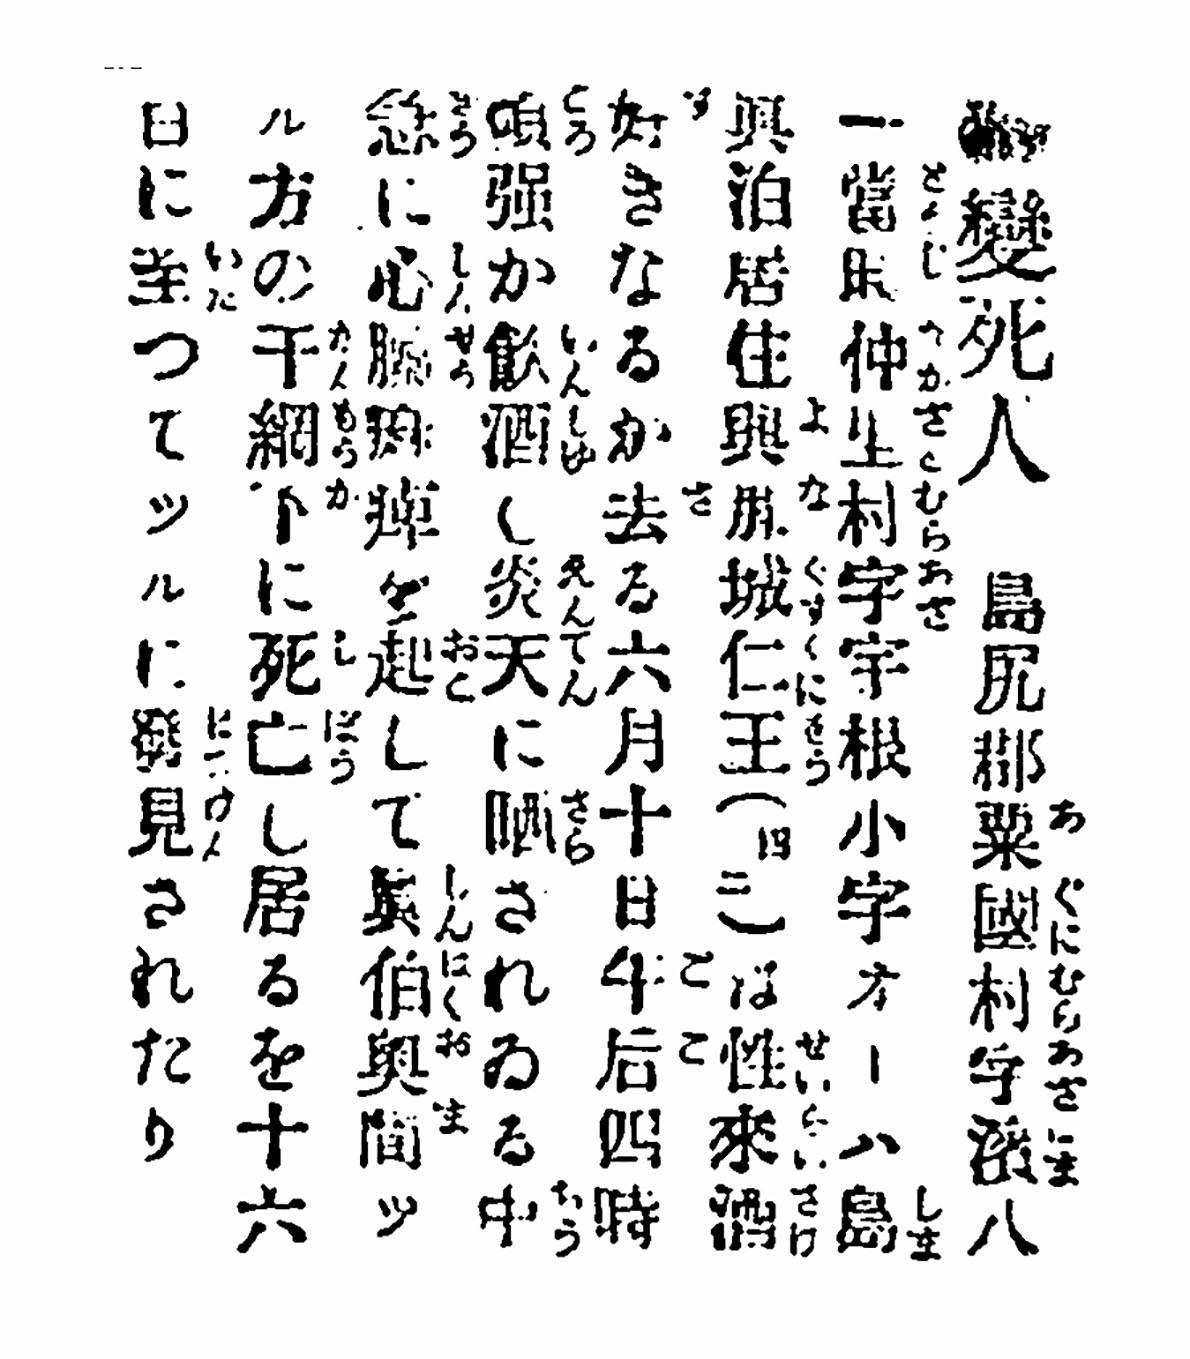 變死人 島尻郡粟國村字濱八
一當時仲里村字宇根小字オーハ島
與泊居住與那城仁王(四
二)は性來酒
好きなるか去る六月十日午后四時
頃强か飮酒し炎天に晒されゐる中
急に心臟痲痺を起して眞伯奥間ッ
ル方の干網下に死亡し居るを十六
日に至つてツルに發見されたり